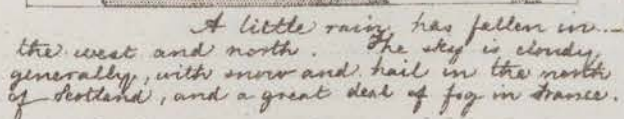 A little rain has fallen in
the west and north. The sky is cloudy
generally, with snow and hail in the north
of Scotland, and a great deal of fog in France.